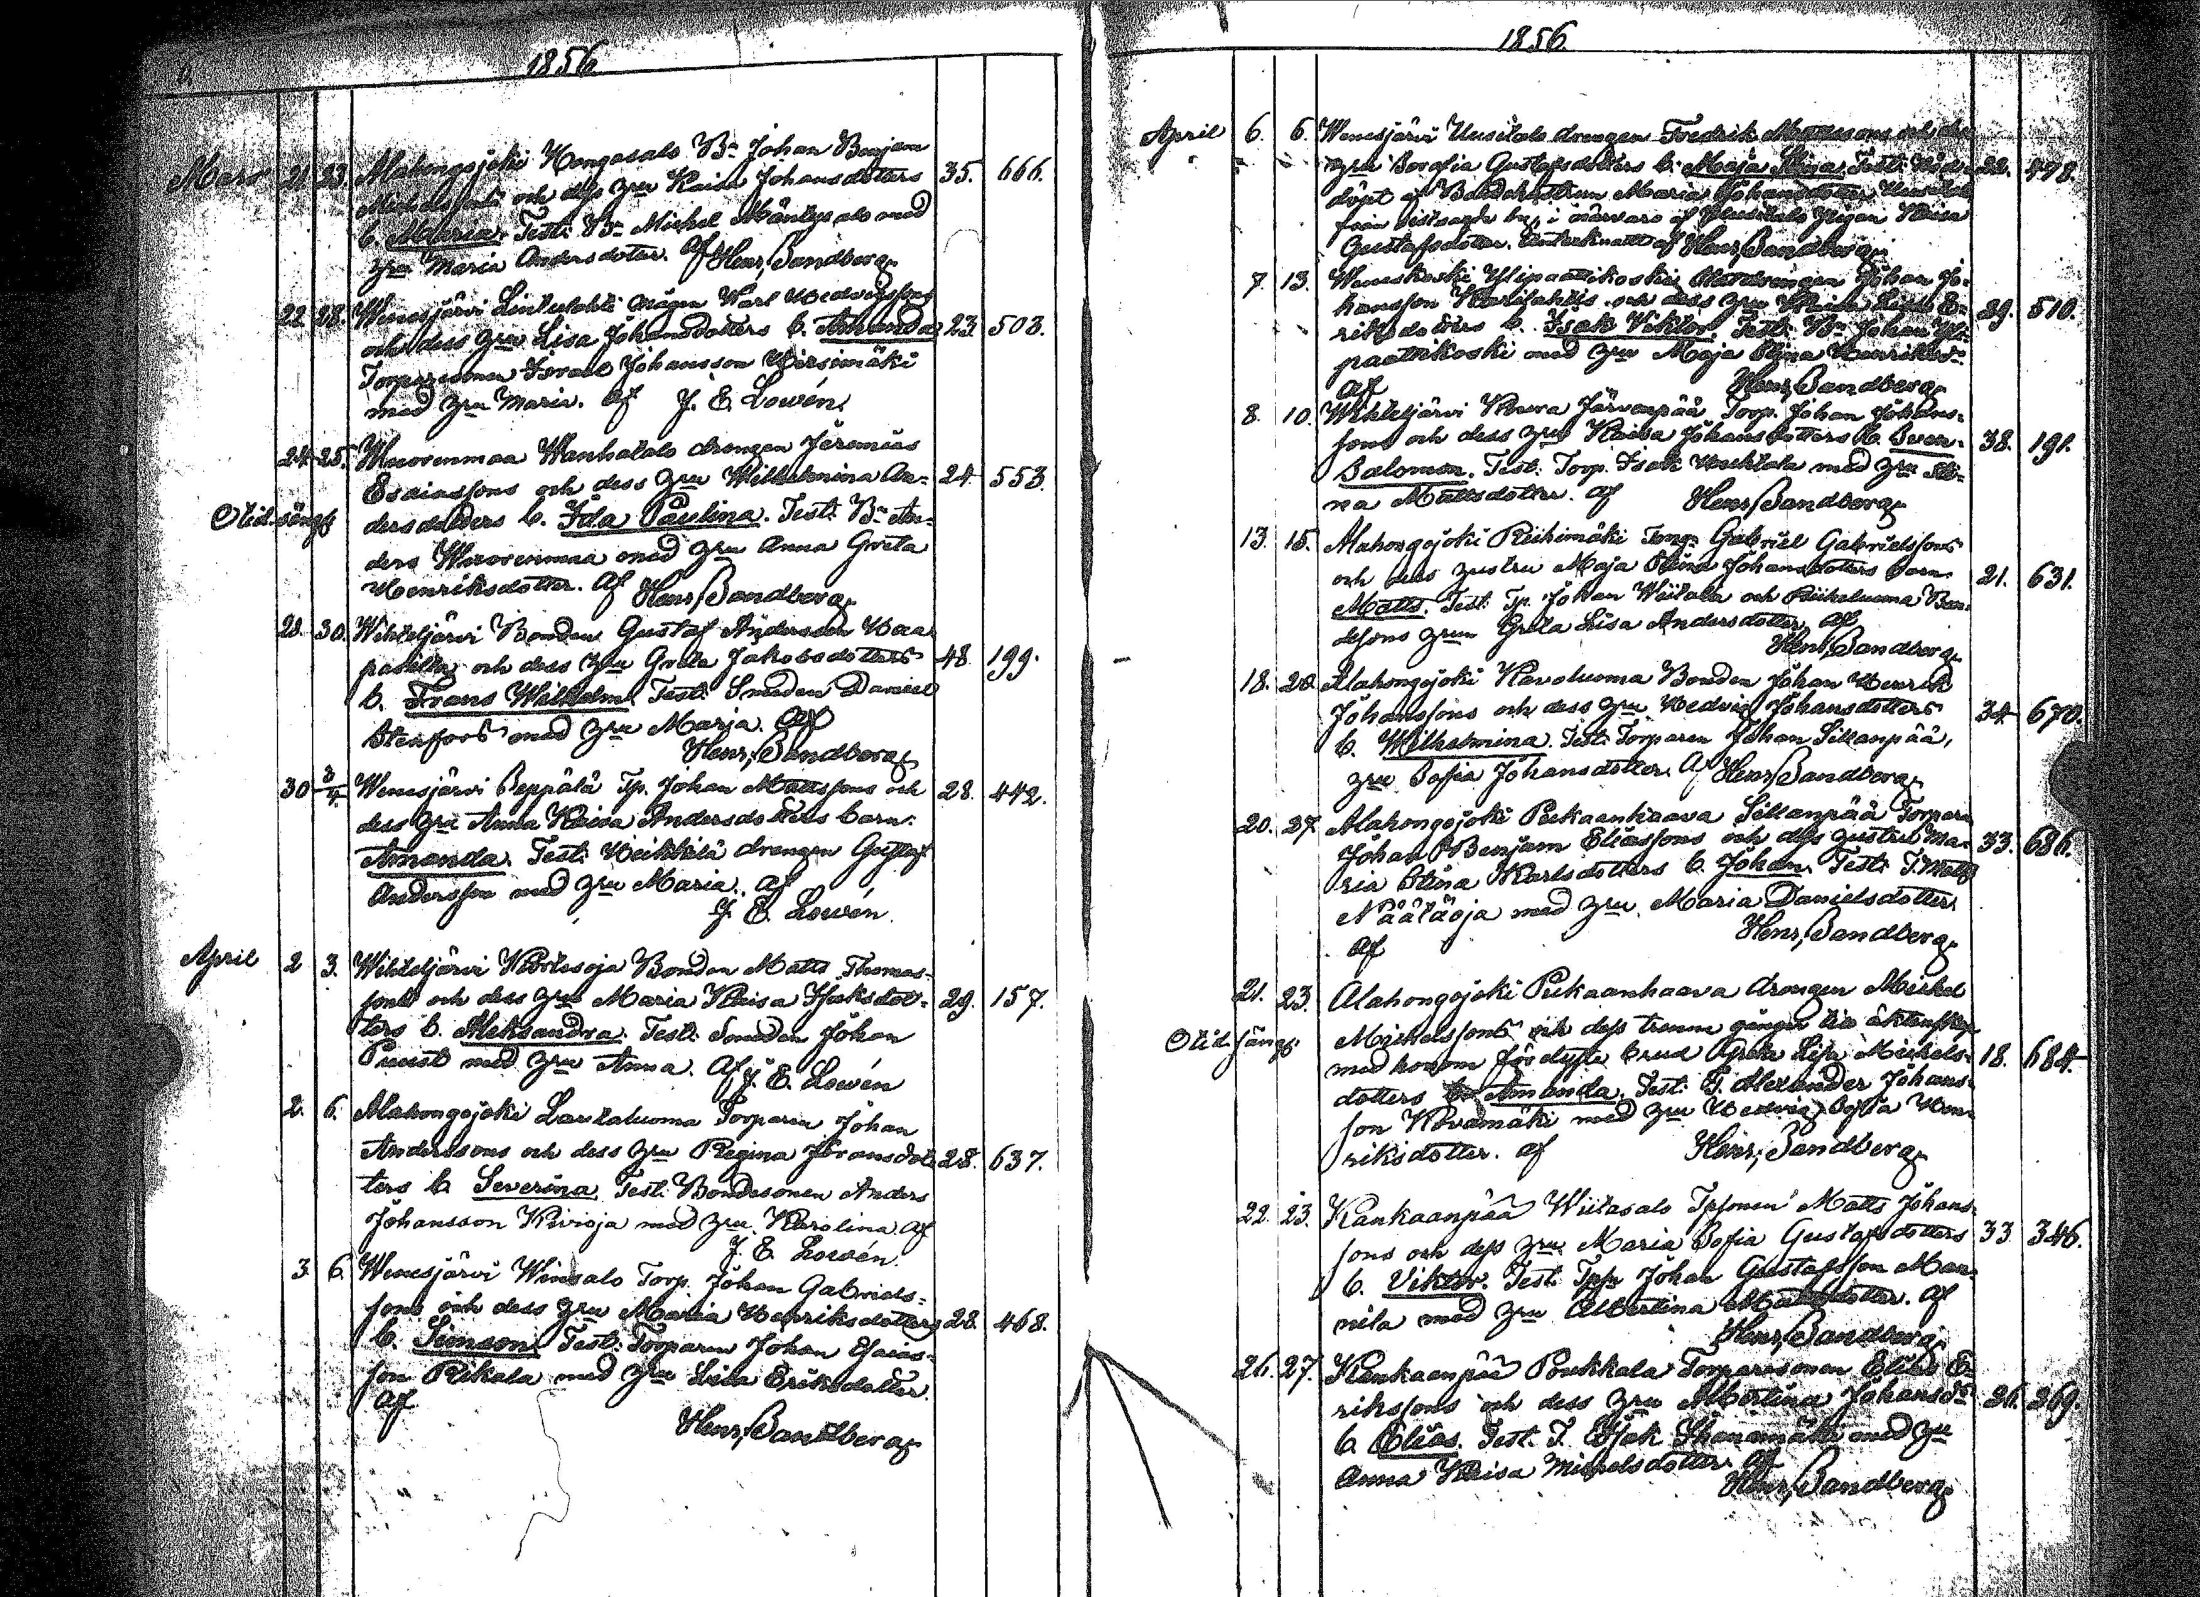 6.
1856
Mars 21. 23. Alahongojoki Hongasalo Bn Johan Benjam
och dess Hru Kaisa Johansdotters 35. 666.
b. Maria. Test: Bn Michel Mäntysalo med
Hru Maria Andersdotter. Af Henr, Sandberg.
22. 28. Wenesjärvi Lintulahti
och dess Hru Lisa Johansdotters b. Amanda 23. 503.
Torparesonen Israel Johansson Wirsimäki
med Hru Maria. Af J. E. Lowén.
24. 25. Wuorenmaa Wanhatalo drengen Jeremias
Esaiassons och dess Hru Wilhelmina An- 24. 553.
Otid. säng.
dersdotters b. Ida Paulina. Test: Bn An-
ders Wuorenmaa med Hru Anna Greta
Henriksdotter. Af Henr, Sandberg.
28. 30. Wihteljärvi Bonden Gustaf Andersson Haa-
och dess Hru Greta Jakobsdotters 48 199.
b. Frans Wilhelm. Test: Smeden Daniel
Stenfors med Hru Maria. Af
Henr, Sandberg.
30 3/4. Wenesjärvi Seppälä Tp. Johan Mattssons och 28. 442.
dess Hru Anna Kaisa Andersdotters barn.
Amanda. Test: Heikkilä drengen Gustaf
Andersson med Hru Maria. Af
J. E. Lowén.
April 2 3. Wihteljärvi Bonden Matts Thomas-
sons och dess Hru Maria Kaisa Isaksdot- 29. 157.
ters b. Aleksandra. Test: Smeden Johan
Puust med Hru Anna. Af J. E. Lowén
2. 6. Alahongojoki Lautaluoma Torparen Johan
Anderssons och dess Hru Regina Jöransdot- 28. 637.
ters b. Severina. Test: Bondesonen Anders
Johansson Kivioja med Hru Karolina. Af
J. E. Lowén.
3. 6. Wenesjärvi Torp. Johan Gabriels-
sons och dess Hru Maria Henriksdotters 28. 468.
b. Simson. Test: Torparen Johan Esaias-
son Rikala med Hru Lisa Eriksdotter.
Af
Henr, Sandberg.
1856
April 6. 6. Wenesjärvi Uusitalo drengen Fredrik
Hru Gustafsdotters b. Maja Stina. Test: Nöd- 22. 498.
döpt af Maria Johansdotter
i närvaro af Uusitalo Kaisa
Gustafsdotter. Antecknadt af Henr, Sandberg.
7. 13. Johan Jo-
hansson och dess Hru Lisa E- 29. 510.
riksdotters b. Isak Viktor. Test: Bn Johan Yli-
paattikoski med Hru Maja Stina Henriksdr
Af Henr, Sandberg.
8. 10. Wihteljärvi Järvenpää Torp. Johan Johans-
sons och dess Hru Kaisa Johansdotters b. Sven- 38. 191.
Salomon. Test: Torp. Isak med Hru Sti-
na Mattsdotter. Af Henr, Sandberg.
13. 15. Alahongojoki Riihimäki Gabriel Gabrielssons
och dess hustru Maja Stina Johansdotters barn 21. 631.
Matts. Test: Tp. Johan Wiitala och Riiheluoma Bon-
desons Hru Greta Lisa Andersdotter. Af
Henr, Sandberg.
18. 20. Alahongojoki Havoluoma Bonden Johan Henrik
Johanssons och dess Hru Hedvig Johansdotters 34. 670.
b. Wilhelmina. Test: Torparen Johan Sillanpää,
Hru Sofia Johansdotter. Af Henr, Sandberg.
20. 27. Alahongojoki Pukaanhaava Sillanpää Torparen
Johan Benjam Eliassons och dess hustru Ma- 33. 686.
ria Stina Karlsdotters b. Johan. Test: T. Matts
Näätäoja med Hru Maria Danielsdotter.
Af Henr, Sandberg.
21. 23. Alahongojoki Pukaanhaava drengen Michel
Otid. säng.
Michelssons och dess trenne gånger till äktenskap
med honom förelyste brud Greta Lisa Michels- 18. 684.
dotters b. Amanda. Test: T. Alexander Johans-
son Kivamäki med Hru Hedvig Sofia Hen-
riksdotter. Af Henr, Sandberg.
22. 23. Kankaanpää Wiitasalo Tpsonen Matts Johans-
sons och dess Hru Maria Sofia Gustafsdotters 33 346.
b. Viktor. Test: Johan Gustafsson Man-
nila med Hru Albertina Mattsdotter. Af
Henr, Sandberg.
26. 27. Kankaanpää Poukkala Torparesonen Elias E-
rikssons och dess Hru Albertina Johansdrs 26. 269.
b. Elias. Test: T. Isak med Hru
Anna Kaisa Michelsdotter. Af
Henr, Sandberg.